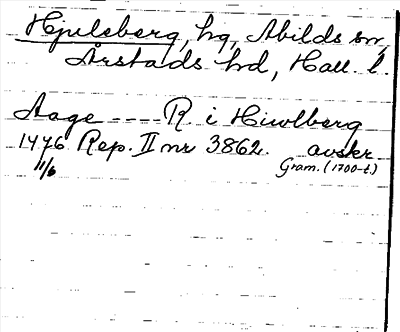 Hjulsberg, hg, Abilds sn,
Årstads hd, Hall. l.
Aage ---- R. i Hiwlberg
1476 Rep. II nr 3862. avskr
11/6 Gram. (1700-t.)